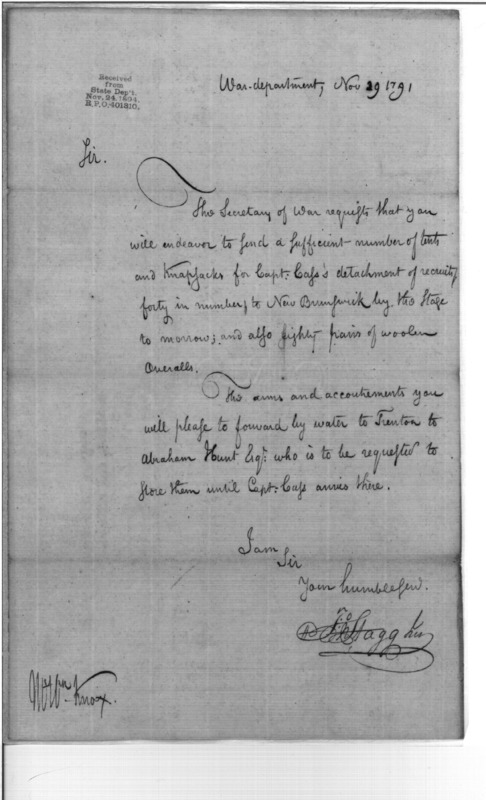 Received
from
State Dep't.
Nov. 24, 1894,
R.P.O. 401310.
War-department, Nov 29 1791
Sir.
The Secretary of War requests that you
will endeavor to send a sufficient number of tents
and Knapsacks for Capt. Cass's detachment of recruits,
forty in number, to New Brunswick by the Stage
to morrow; and also eighty pairs of woolen
Overalls.
The arms and accoutrements you
will please to forward by water to Trenton to
Abraham Hunt Esqr. who is to be requested to
store them until Capt. Cass arrives there.
I am
Sir
Your humble Serv.
Jno Stagg Jun
Wm Knox.